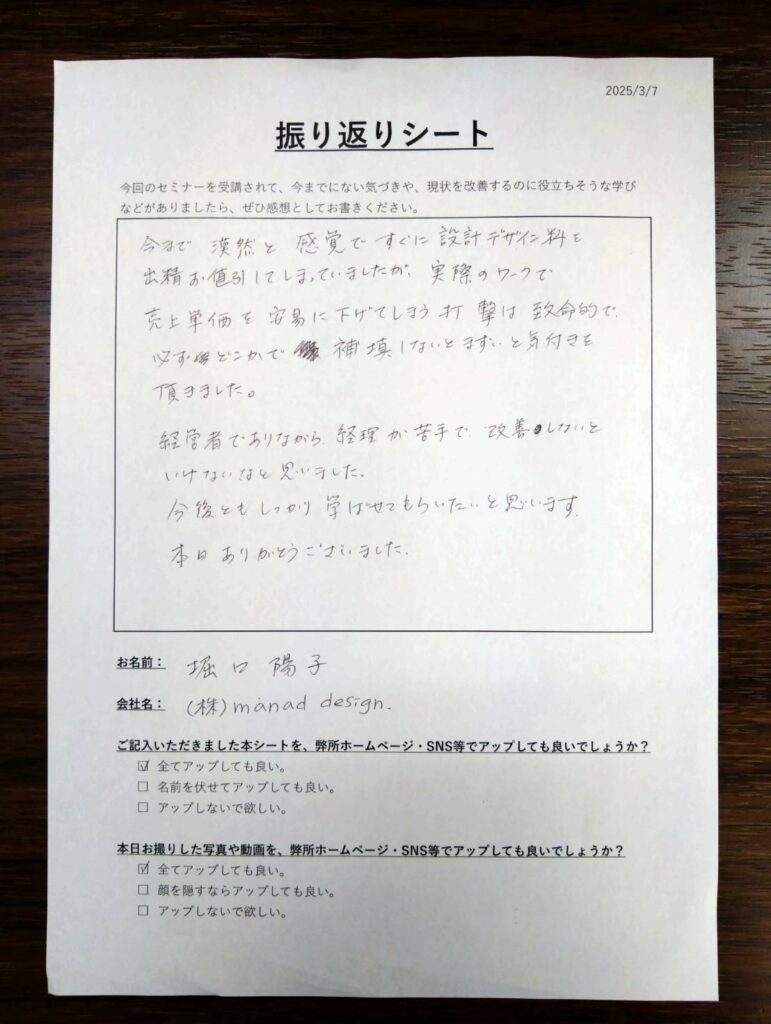 2025/3/7
振り返りシート
今回のセミナーを受講されて、今までにない気づきや、現状を改善するのに役立ちそうな学び
などがありましたら、ぜひ感想としてお書きください。
今まで 漠然と 感覚で すぐに 設計デザイン料を
出精お値引してしまっていましたが、実際のワークで
売上単価を 安易に 下げてしまう 打撃は 致命的で、
必ず どこかで 補填しないとまずいと気付きを
頂きました。
経営者でありながら、経理が苦手で、改善しないと
いけないなと思いました。
今後とも しっかり 学ばせてもらいたいと思います。
本日 ありがとうございました。
お名前： 堀口 陽子
会社名： (株) manad design.
ご記入いただきました本シートを、弊所ホームページ・SNS等でアップしても良いでしょうか？
☑ 全てアップしても良い。
☐ 名前を伏せてアップしても良い。
☐ アップしないで欲しい。
本日お撮りした写真や動画を、弊所ホームページ・SNS等でアップしても良いでしょうか？
☑ 全てアップしても良い。
☐ 顔を隠すならアップしても良い。
☐ アップしないで欲しい。